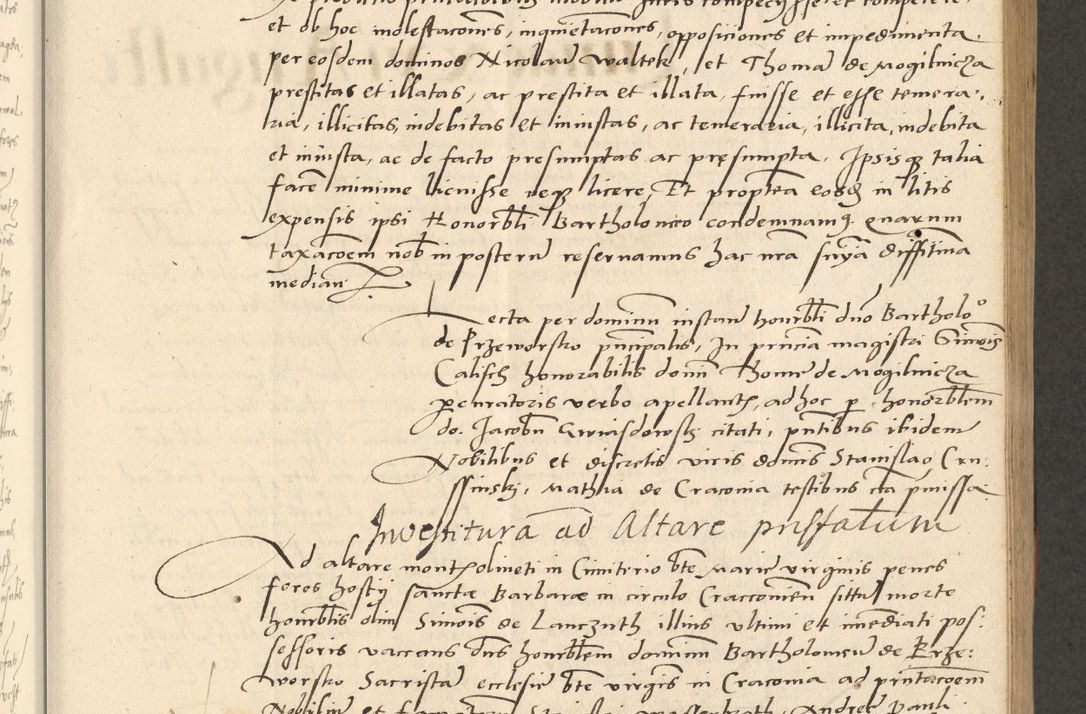 et ob hoc molestacones, inquietacones, opposiciones et impedimenta
per eosdem dominos Nicolaum Waltek, et Thomam de Mogilnicza
prestitas et illatas, ac prestita et illata, fuisse et esse temera-
ria, illicitas, indebitas et iniustas, ac temeraria, illicita, indebita
et iniusta, ac de facto presumptas ac presumpta. Ipsisque talia
facere minime licuisse neque licere, Et propterea eosdem in litis
expensis ipsi Honorbli Bartholomeo condemnamus quarum
taxacoem nob in posterum reservamus hac nra sniam diffitiua
median
Lecta per dominum instan honrbli dno Bartholo
de Przeworsko principalis, In pncia magistri Simonis
Calisch honorabilis domini Thome de Mogilnicza
procuratoris verbo apellantis, ad hoc per honorblem
do. Jacobum Gwiasdowski citati, pntibus ibidem
Nobilibus et discretis viris dominis Stanislao Cru-
ssinski, Mathia de Craconia testibus
Investitura ad Altare prefatum
Ad altare montis oliueti in Cimiterio bte Marie virginis penes
fores hostij sancte Barbarae in circulo Cracconien situm morte
honrblis olim Simonis de Lanczuth illius vltimi et imediati pos-
sessoris vaccans dns honrblem dominum Bartholomeum de Prze-
worsko Sacristam ecclesie bte virginis in Craconia ad pntacoem
Nobilium et Andree Pauli